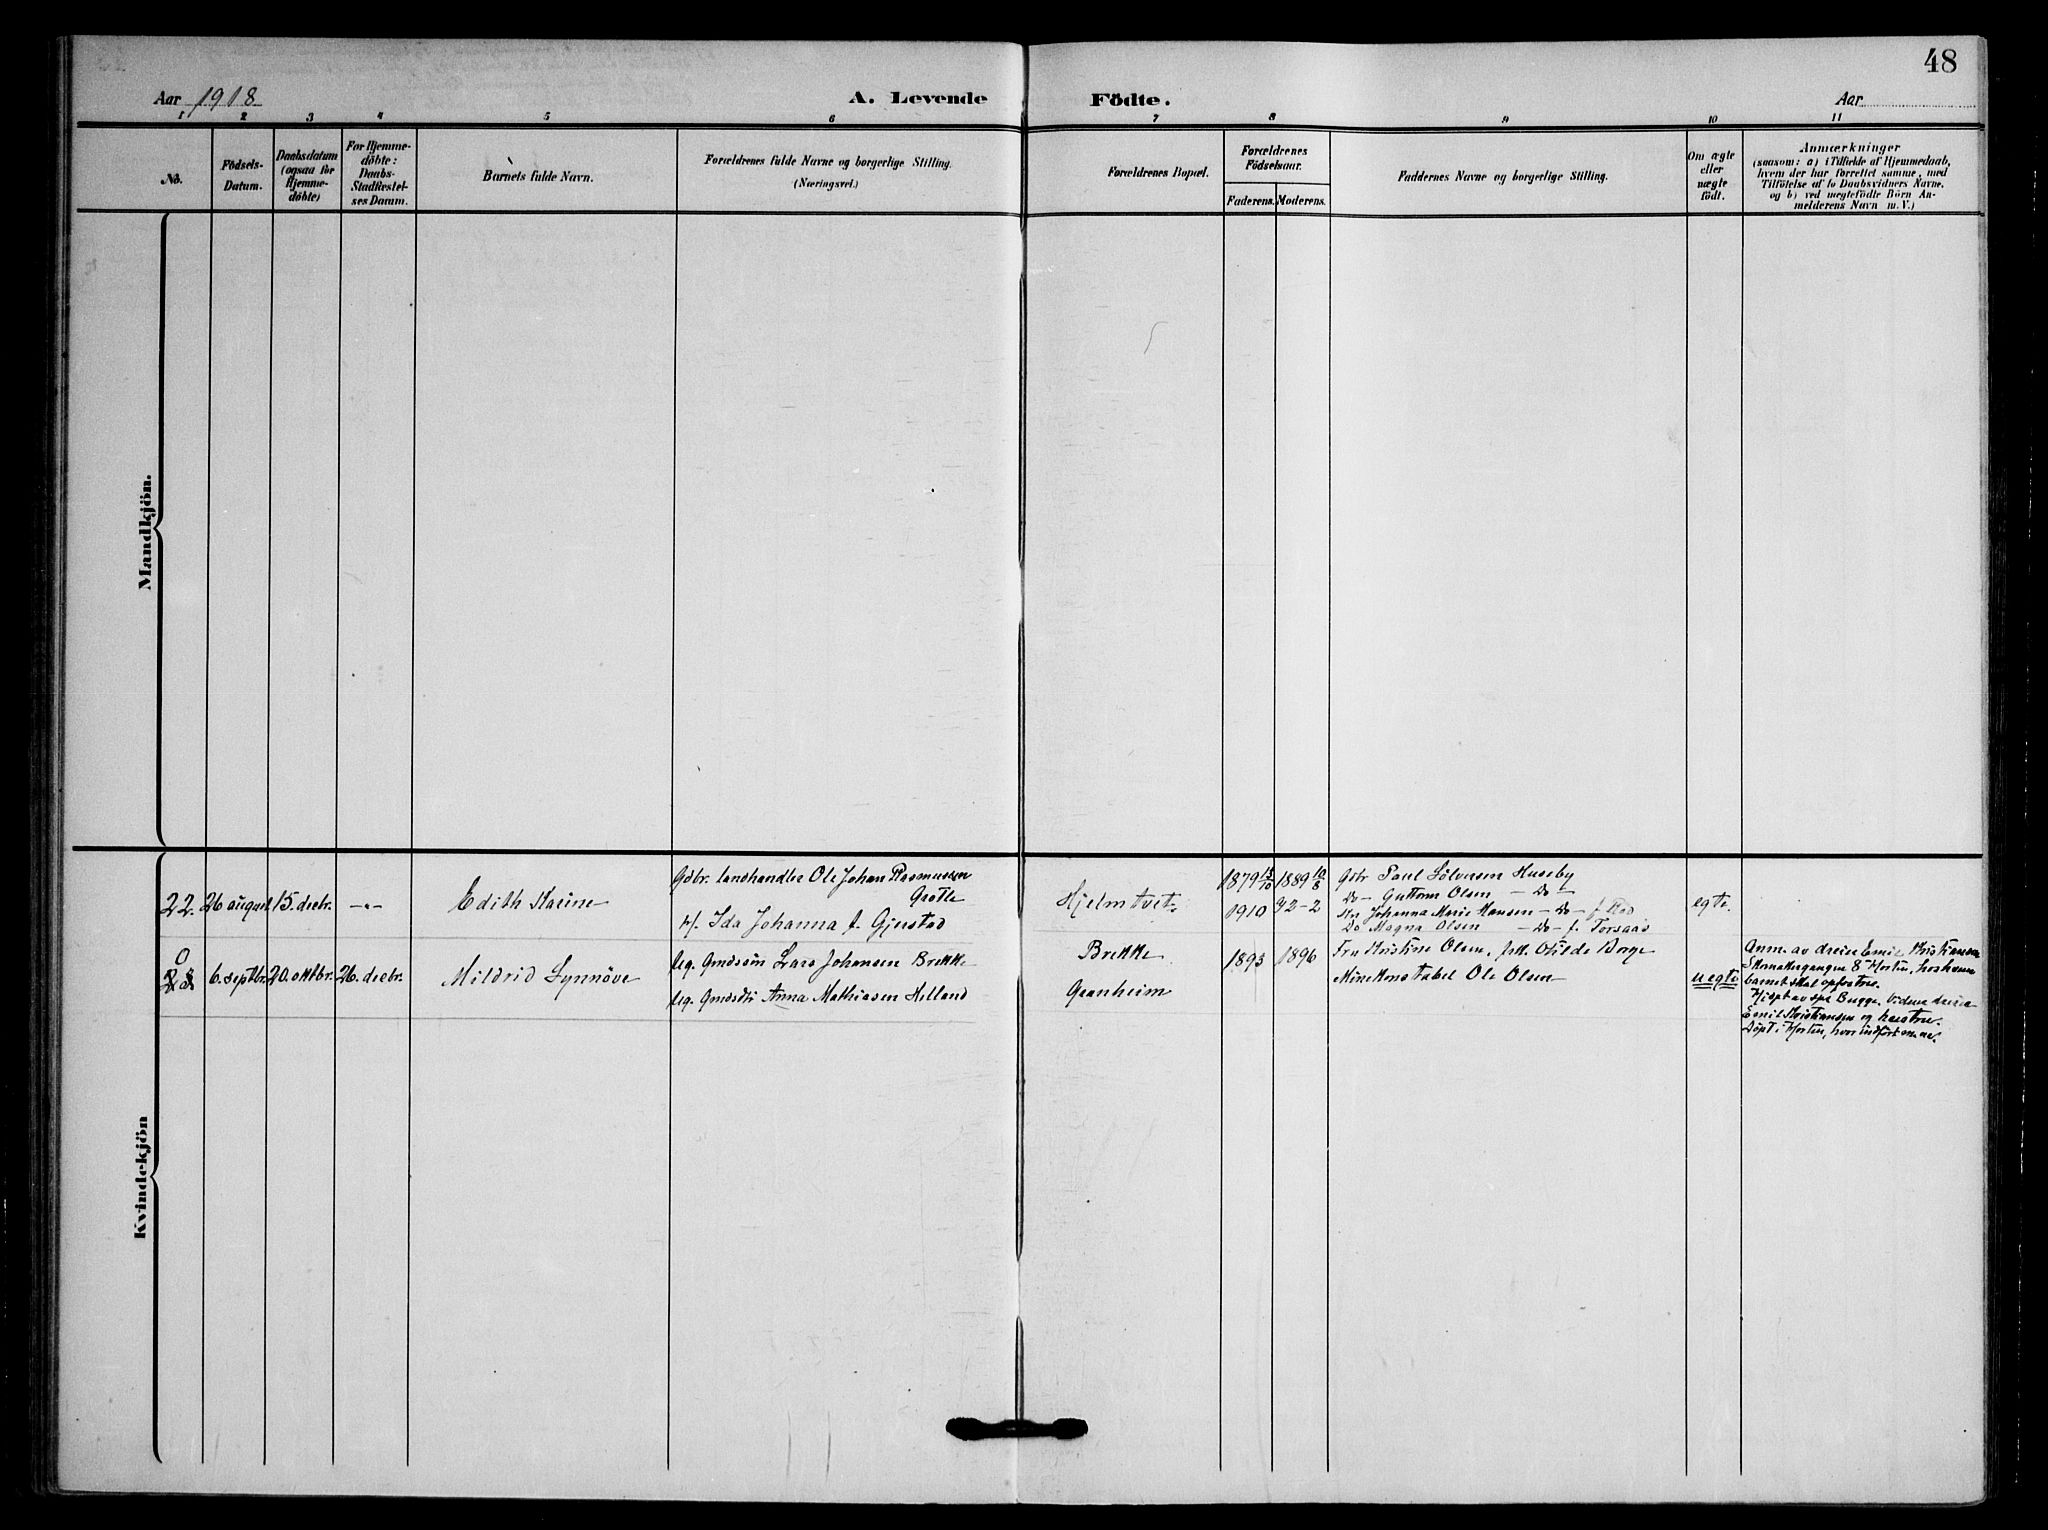 48
Aar 1918.
A. Levende Födte.
Aar
1 2 3 4 5 6 7 8 9 10 11
No.
Födsels-
Datum.
Daabsdatum
(ogsaa for
Hjemme-
döbte)
For Hjemme-
döbte:
Daabs-
Stadfæstel-
ses Datum.
Barnets fulde Navn.
Forældrenes fulde Navne og borgerlige Stilling.
(Næringsvei.)
Forældrenes Bopæl.
Forældrenes
Födselsaar.
Faderens. Moderens.
Faddernes Navne og borgerlige Stilling.
Om ægte
eller
uægte
födt.
Anmærkninger
(saasom: a) i Tilfælde af Hjemmedaab,
hvem der har forrettet samme, med
Tilföielse af to Daabsvidners Navne,
og b) ved uægtefödte Börn An-
melderens Navn m. V.)
Mandkjön.
Kvindekjön
22. 26 august 15. decbr. -"-
Edith Karine
Gdbr. landhandler Ole Johan Rasmussen
Grotle
H/. Ida Johanna f. Gjerstad
Hjelmtvet
1879 1889
1910
Gbr Paul Sölversen Huseby
Do - Guttorm Olsen - Do -
Johanna Marie Hansen - Do -
Do Magna Olsen - Do - f. Torsaas
egte.
0
6. septbr. 20. oktbr. 26. decbr.
Mildrid Synnöve
Ug. Gmdssön Lars Johansen Brekke
Ug. Gmdsdtr Anna Mathiasen Helland
Brekke
Granheim
1893 1896
Fru Kristine Olsen, frk. Otilde Borge
Minekonstabel Ole Olsen
uegte
Anm. av dreier Emil Kristiansen
8 Horten, hos hvem
barnet skal opfostres.
Hjdpt av Bugge. Vidner dreier
Emil Kristiansen og hustru.
Döpt i Horten, hvor indfört m. nr.